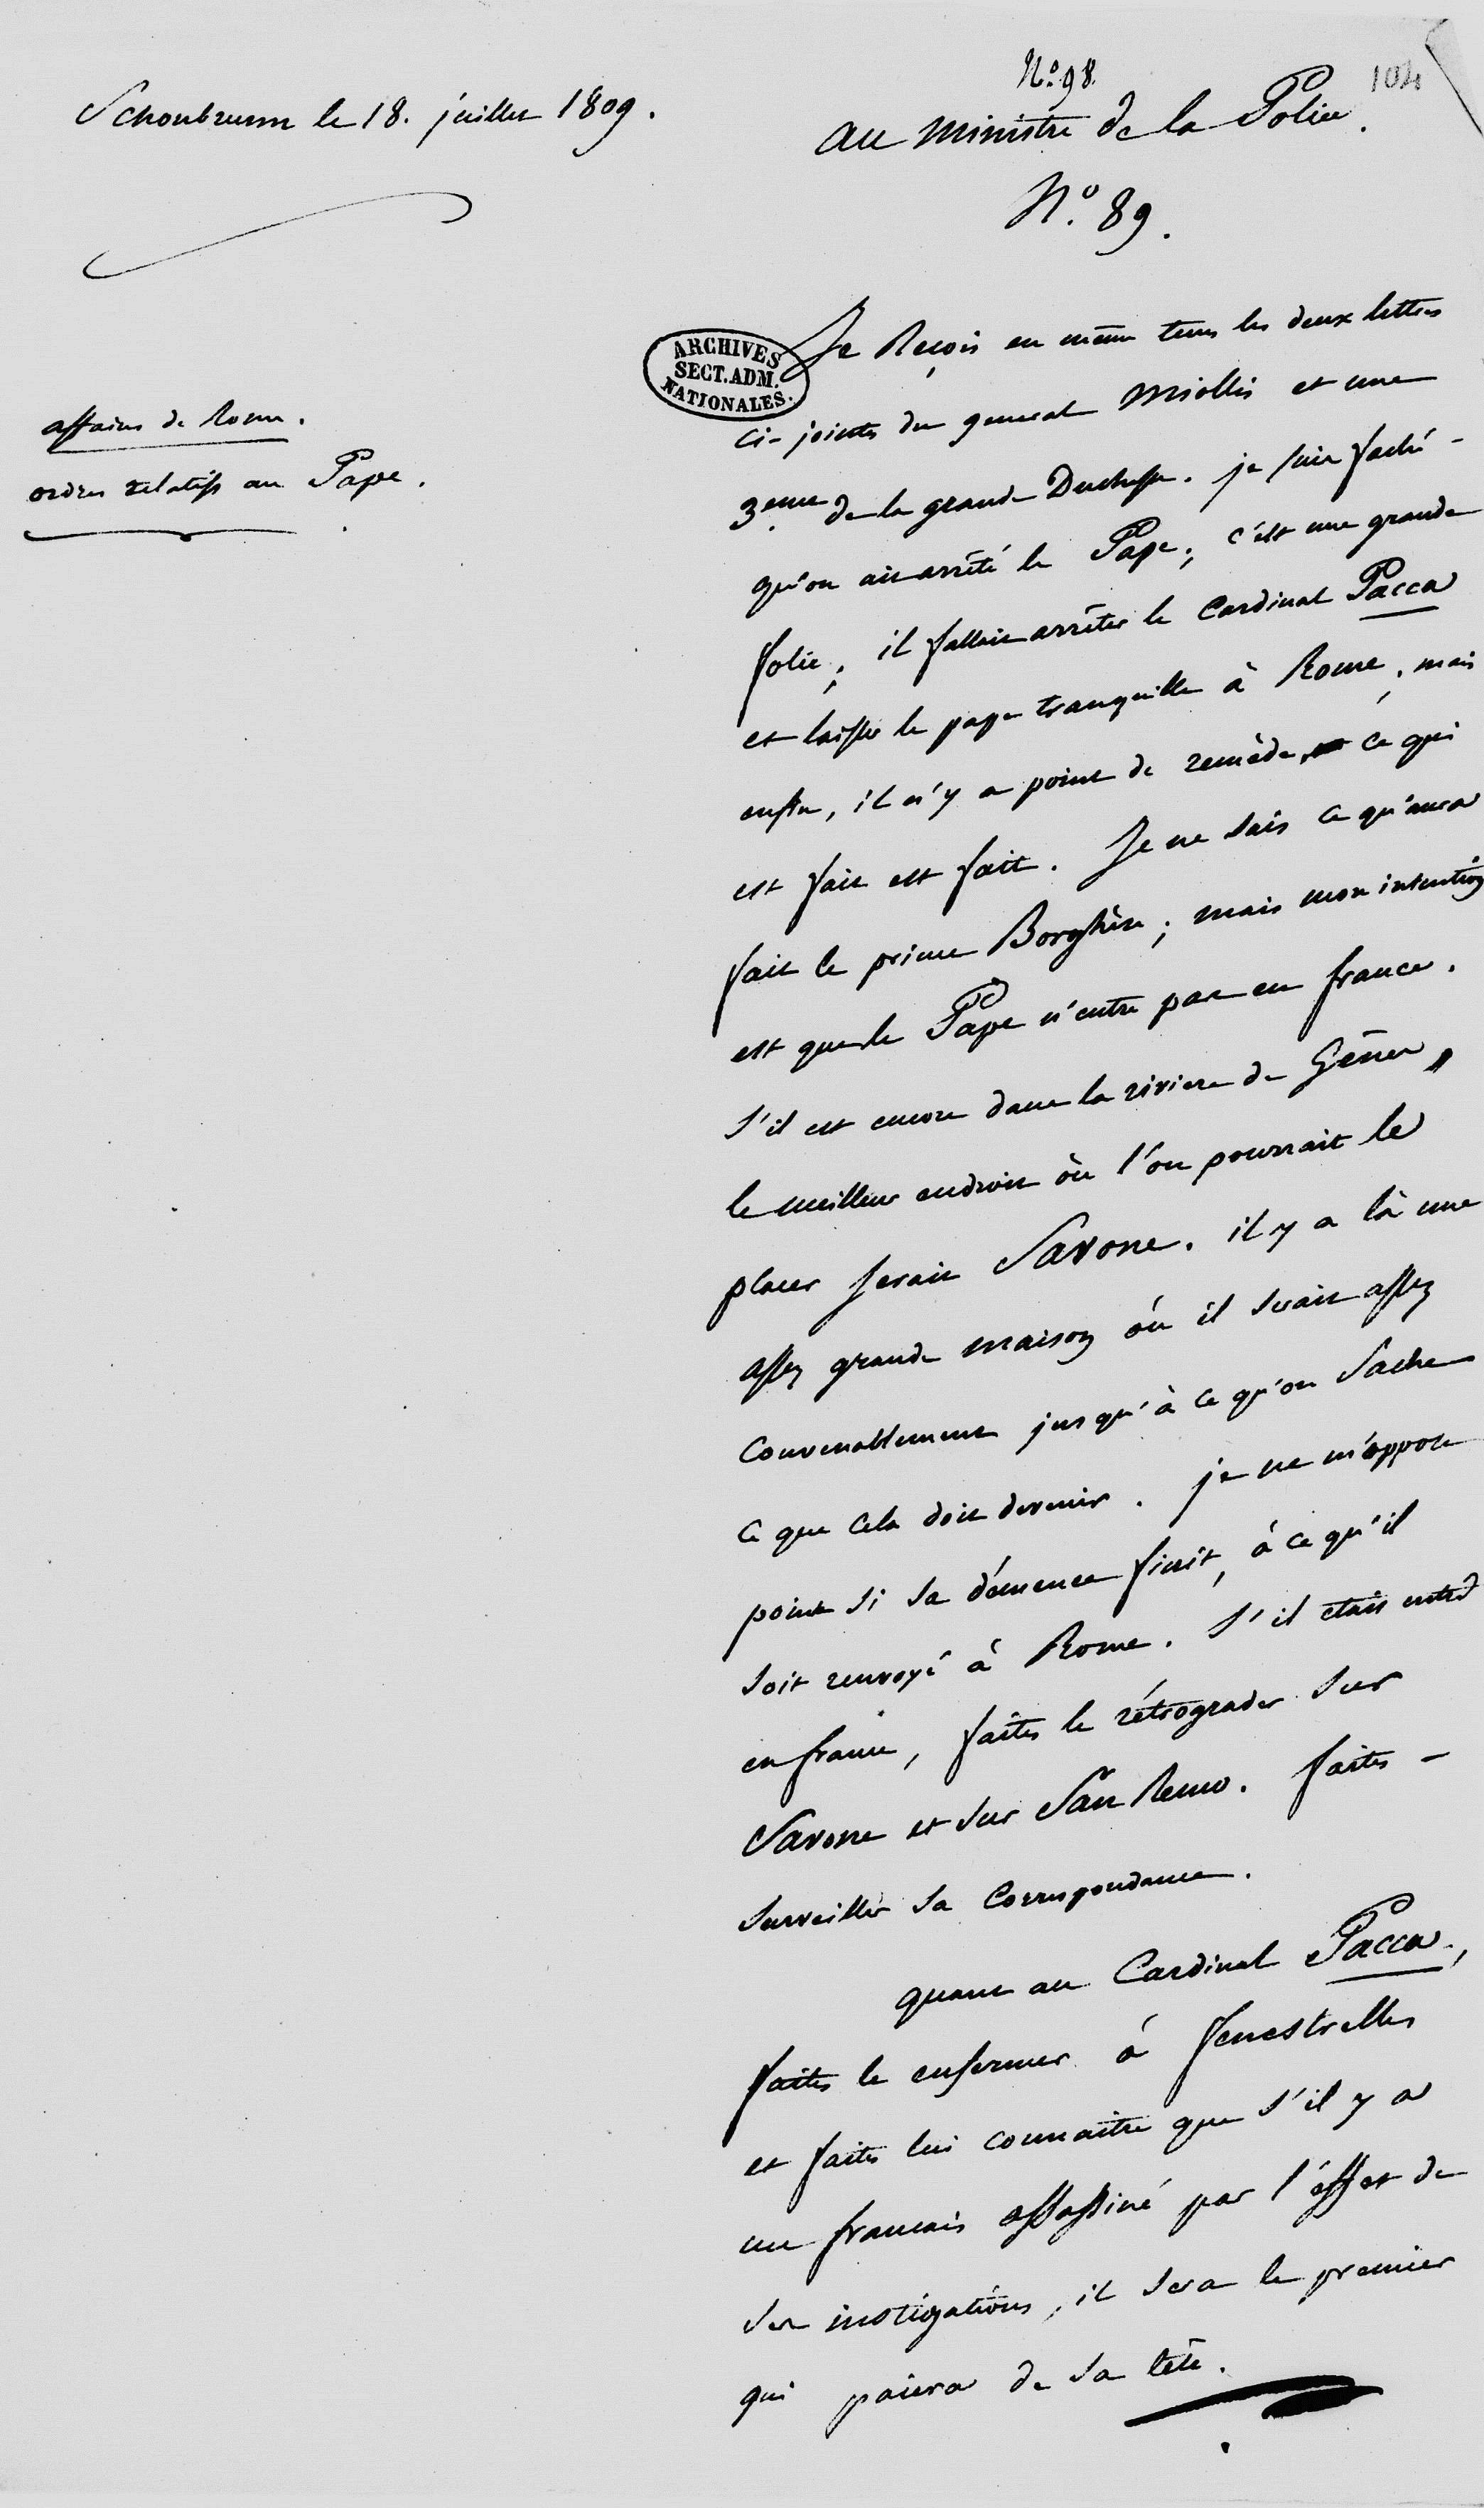 Schonbrunn le 18. juillet 1809.
N.o 98.
104
au ministre de la Police.
N.o 89.
affaires de Rome.
ordres relatifs au Pape.
ARCHIVES
SECT. ADM.
NATIONALES.
Je Reçois en même tems les deux lettres
ci-jointes du general Miollis et une
3eme de la grande Duchesse. je suis faché
qu'on ait arrêté le Pape; c'est une grande
folie; il fallait arrêter le Cardinal Pacca
et laisser le pape tranquille à Rome; mais
enfin, il n'y a point de remède, ce qui
est fait est fait. Je ne sais ce qu'aura
fait le prince Borghèse; mais mon intention
est que le Pape n'entre pas en france.
S'il est encore dans la riviere de Gênes,
le meilleur endroit où l'on pourrait le
placer serait Savone. il y a là une
assez grande maison où il serait assez
convenablement jusqu'à ce qu'on Sache
ce que cela doit devenir. je ne m'oppose
point si sa démence finit, à ce qu'il
soit renvoyé à Rome. S'il etait entré
en france, faites le rétrograder sur
Savone et sur San Remo. faites-
surveiller sa Correspondance.
quant au Cardinal Pacca,
faites le enfermer à fenestrelles
et faites lui connaitre que s'il y a
un francais assassiné par l'éffet de
ses instigations, il sera le premier
qui paiera de sa tête.